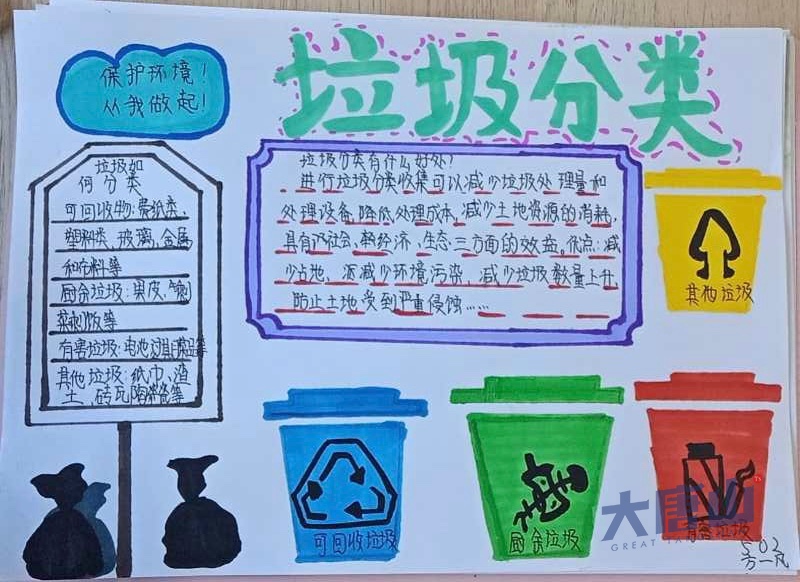 保护环境!
从我做起!
垃圾分类
垃圾如
何分类
可回收物:废纸类、
塑料类、玻璃、金属
和布料等
厨余垃圾:果皮、
菜剩饭等
有害垃圾:电池过期药品等
其他垃圾:纸巾、渣
土、砖瓦陶瓷等
垃圾分类有什么好处?
进行垃圾分类收集可以减少垃圾处理量和
处理设备,降低处理成本,减少土地资源的消耗,
具有社会、经济、生态三方面的效益。优点:减
少占地、减少环境污染、减少垃圾数量上升、
防止土地受到严重侵蚀……
其他垃圾
可回收垃圾
厨余垃圾
有害垃圾
大唐山
GREAT
502
方一凡